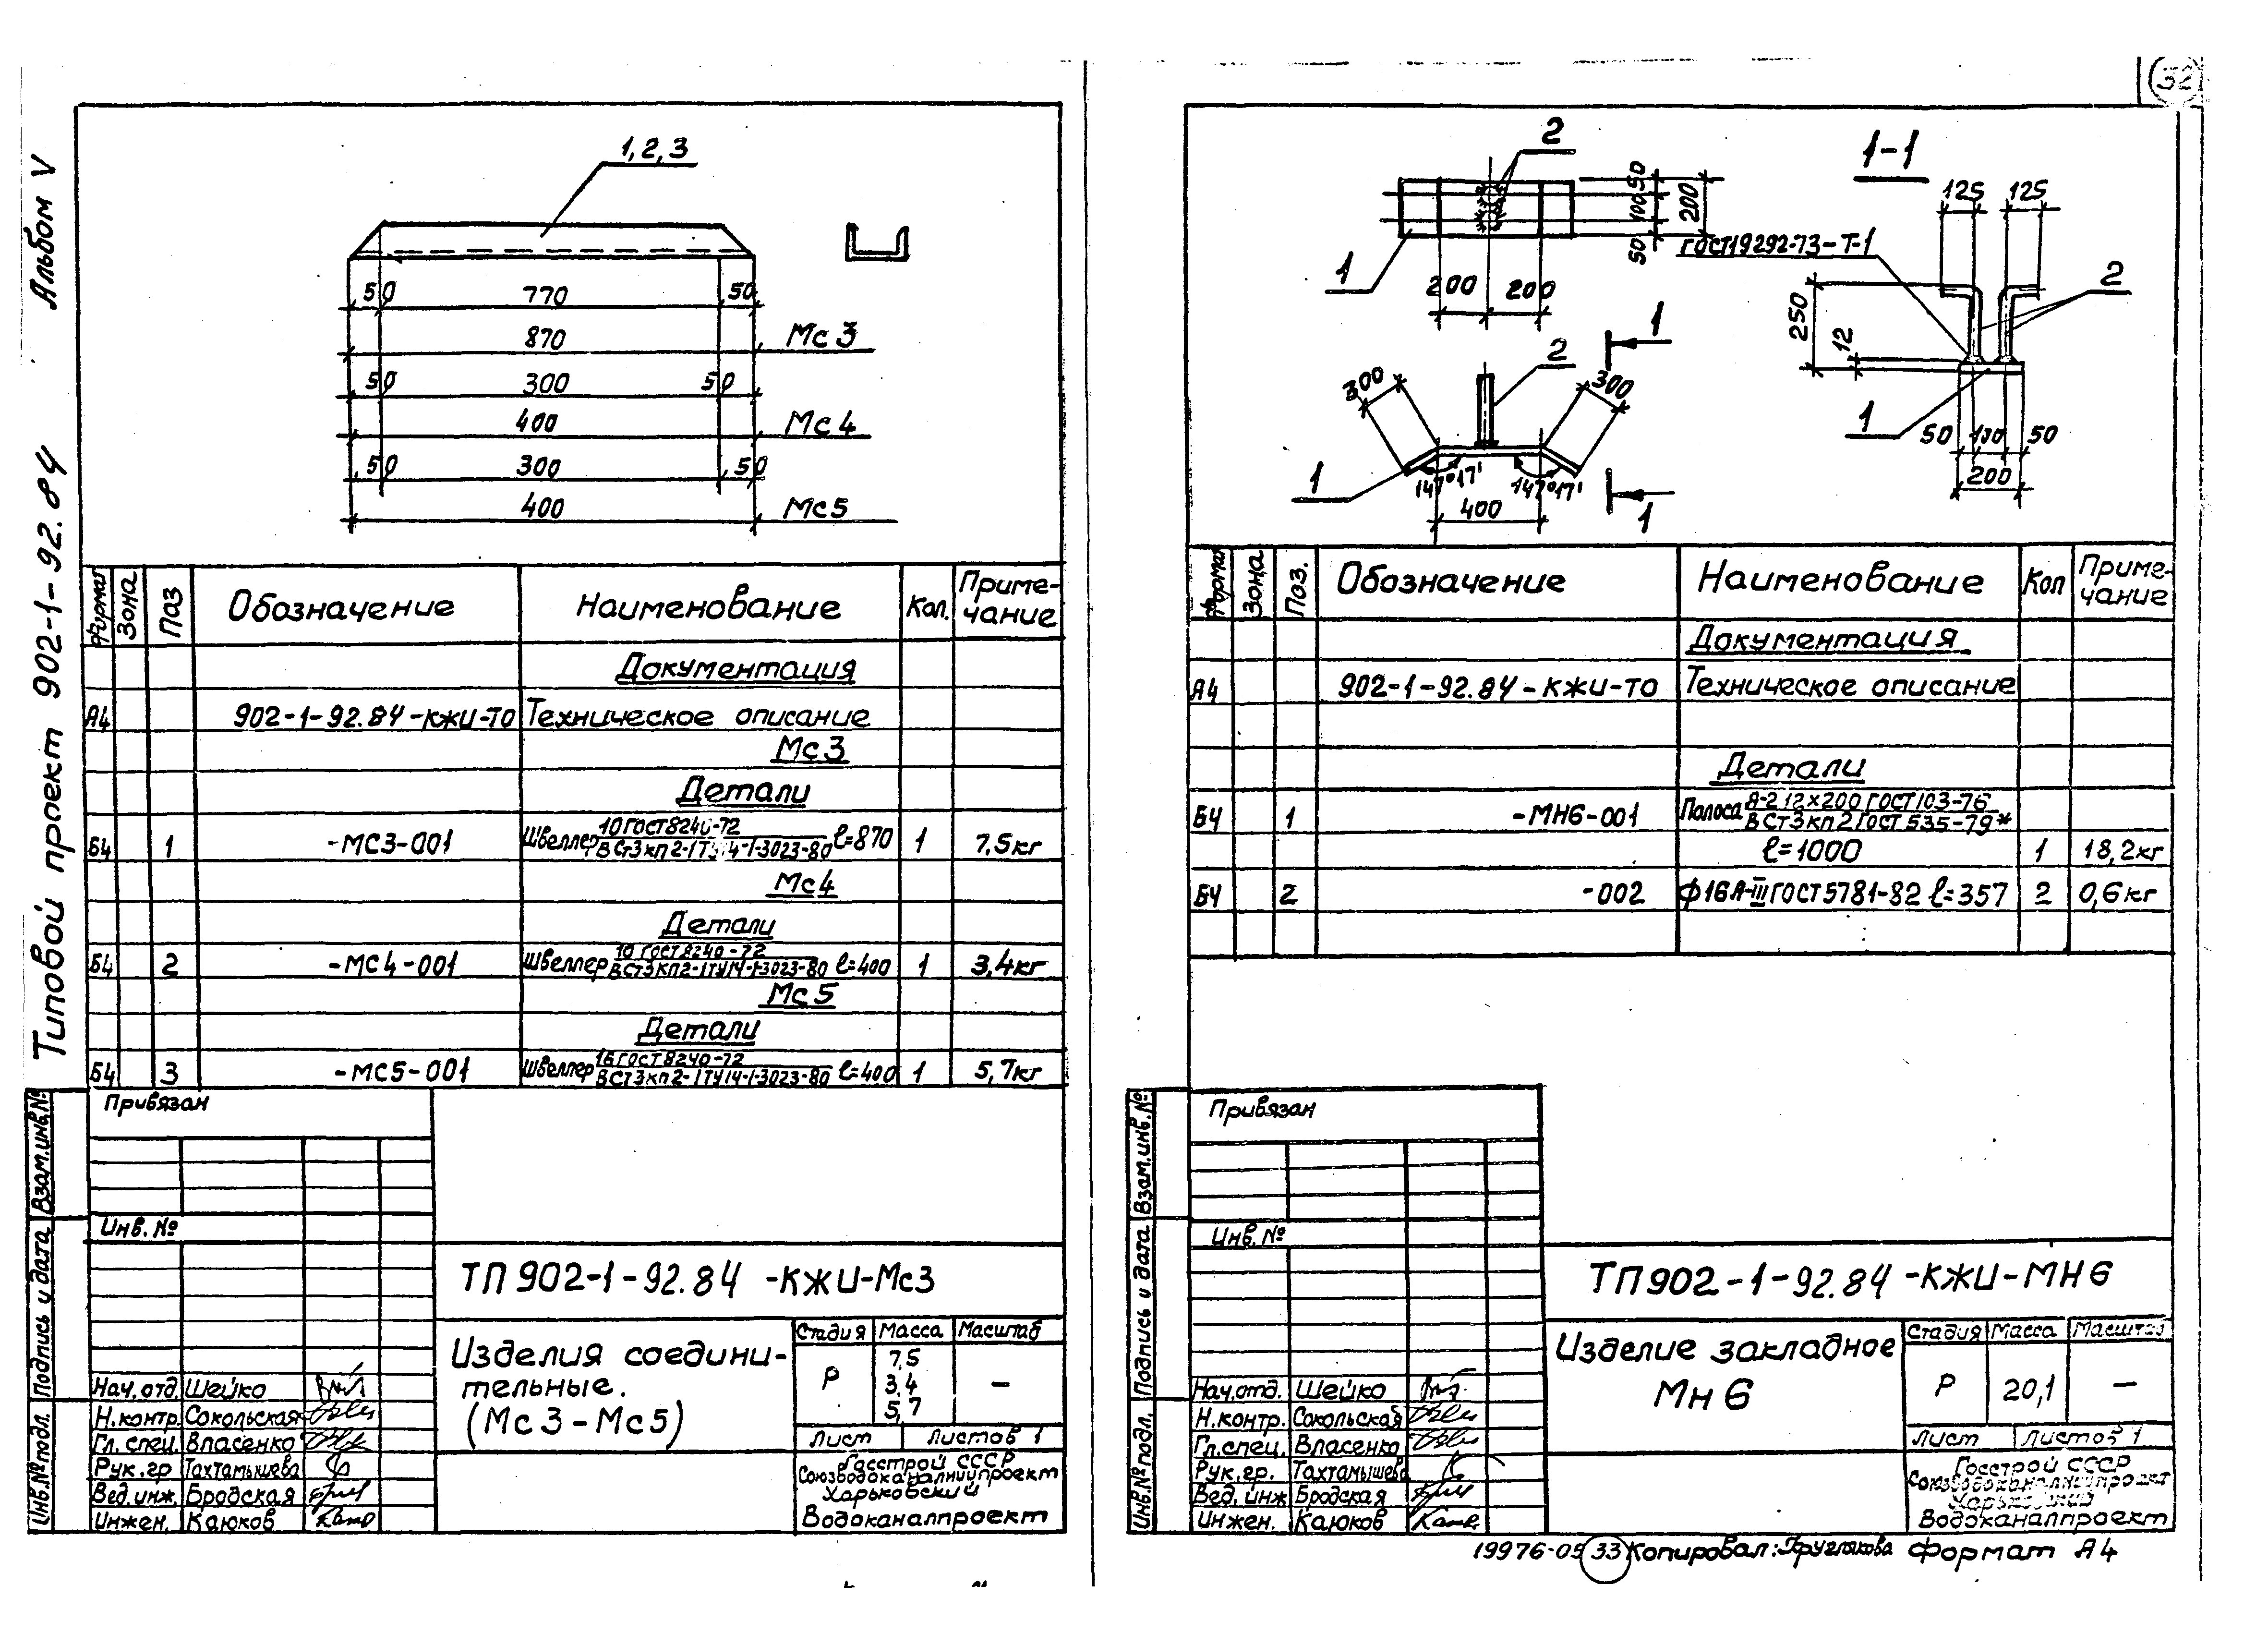 32
Альбом V
Типовой проект 902-1-92.84
1, 2, 3
50 770 50
870 Мс3
50 300 50
400 Мс4
50 300 50
400 Мс5
Формат Зона Поз Обозначение Наименование Кол. Приме-
чание
Документация
А4 902-1-92.84-КЖИ-ТО Техническое описание
Мс3
Детали
Б4 1 -МС3-001 Швеллер 10 ГОСТ 8240-72 / ВСт3кп2-1ТУ14-1-3023-80 ℓ=870 1 7,5кг
Мс4
Детали
Б4 2 -МС4-001 Швеллер 10 ГОСТ 8240-72 / ВСт3кп2-1ТУ14-1-3023-80 ℓ=400 1 3,4кг
Мс5
Детали
Б4 3 -МС5-001 Швеллер 16 ГОСТ 8240-72 / ВСт3кп2-1ТУ14-1-3023-80 ℓ=400 1 5,7кг
Привязан
Инв. №
Взам.инв.№
Подпись и дата
Инв.№ подл.
ТП 902-1-92.84 -КЖИ-Мс3
Изделия соедини-
тельные.
(Мс3-Мс5)
Стадия Масса Масштаб
Р 7,5 —
3,4
5,7
Лист Листов 1
Нач.отд. Шейко
Н.контр. Сокольская
Гл.спец. Власенко
Рук.гр Тахтамышева
Вед.инж. Бродская
Инжен. Каюков
Госстрой СССР
Союзводоканалниипроект
Харьковский
Водоканалпроект
2
1
50 100 50 200
200 200
1-1
125 125
ГОСТ 19292-73-Т-1
2
250
12
1
50 100 50
200
1
2
300 300
1
147°17' 147°17'
400
1
Формат Зона Поз. Обозначение Наименование Кол Приме-
чание
Документация
А4 902-1-92.84-КЖИ-ТО Техническое описание
Детали
Б4 1 -МН6-001 Полоса А-2 12×200 ГОСТ 103-76 / ВСт3кп2 ГОСТ 535-79*
ℓ=1000 1 18,2кг
Б4 2 -002 ф16А-III ГОСТ 5781-82 ℓ=357 2 0,6кг
Привязан
Инв. №
Взам.инв.№
Подпись и дата
Инв.№ подл.
ТП 902-1-92.84 -КЖИ-МН6
Изделие закладное
Мн 6
Стадия Масса Масштаб
Р 20,1 —
Лист Листов 1
Нач.отд. Шейко
Н.контр. Сокольская
Гл.спец. Власенко
Рук.гр. Тахтамышева
Вед.инж Бродская
Инжен. Каюков
Госстрой СССР
Союзводоканалниипроект
Харьковский
Водоканалпроект
19976-05 33 Копировал: Круглякова Формат А4